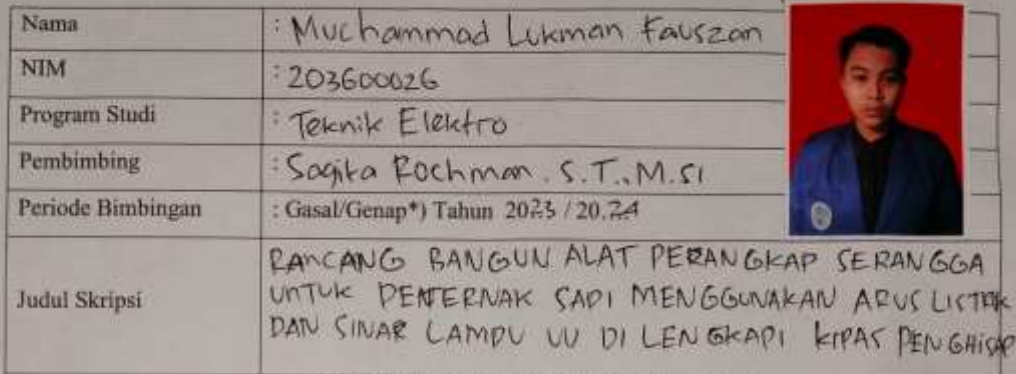 Nama : Muchammad Lukman Fauszan
NIM : 203600026
Program Studi : Teknik Elektro
Pembimbing : Sagita Rochman. S.T., M.Si
Periode Bimbingan : Gasal/Genap*) Tahun 2023 / 2024
Judul Skripsi : RANCANG BANGUN ALAT PERANGKAP SERANGGA
UNTUK PENTERNAK SAPI MENGGUNAKAN ARUS LISTRIK
DAN SINAR LAMPU UV DI LENGKAPI KIPAS PENGHISAP